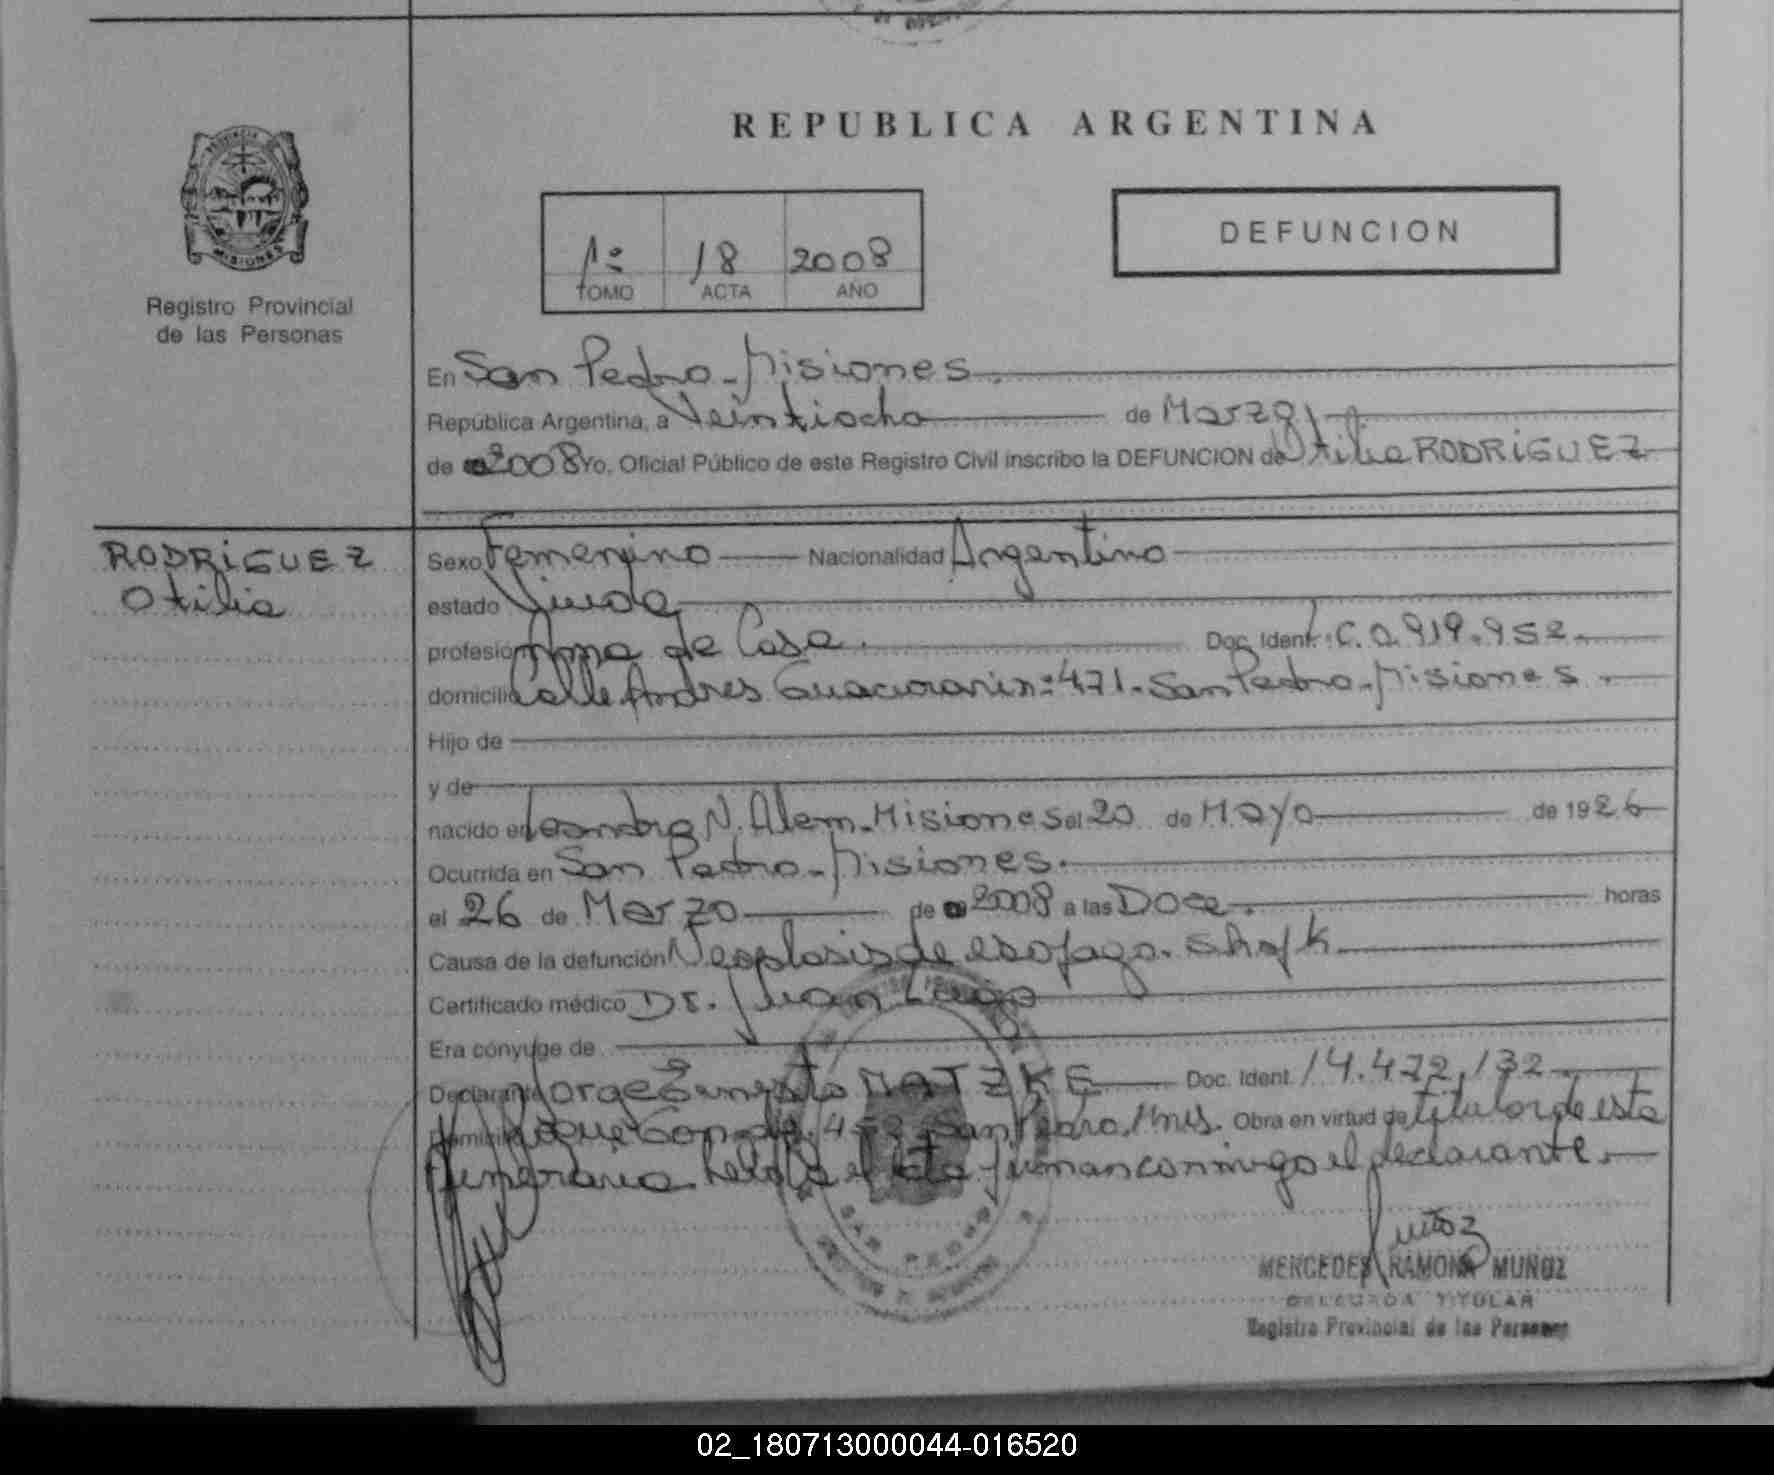 REPUBLICA ARGENTINA
PROVINCIA DE
MISIONES
Registro Provincial
de las Personas
1º 18 2008
TOMO ACTA AÑO
DEFUNCION
En San Pedro - Misiones.
República Argentina, a Veintiocho de Marzo
de 2008 Yo, Oficial Público de este Registro Civil inscribo la DEFUNCION de Otilia RODRIGUEZ
RODRIGUEZ
Otilia
Sexo Femenino Nacionalidad Argentina
estado Viuda
profesión Ama de Casa. Doc. Ident. L.C. 0.919.952.
domicilio Calle Andres Guacurari nº 471. San Pedro - Misiones.
Hijo de
y de
nacido en Leandro N. Alem - Misiones el 20 de Mayo de 1926
Ocurrida en San Pedro - Misiones.
el 26 de Marzo de 2008 a las Doce. horas
Causa de la defunción Neoplasis de esofago. Shofk
Certificado médico Dr. Juan Lago
Era cónyuge de
Declarante Jorge Ernesto MATZKE Doc. Ident. 14.472.132
Domicilio San Pedro. Mnes. Obra en virtud de titular de esta
funeraria. Leída el acta firman conmigo el declarante.
SAN PEDRO
Muñoz
MERCEDES RAMONA MUÑOZ
DELEGADA TITULAR
Registro Provincial de las Personas
02_180713000044-016520